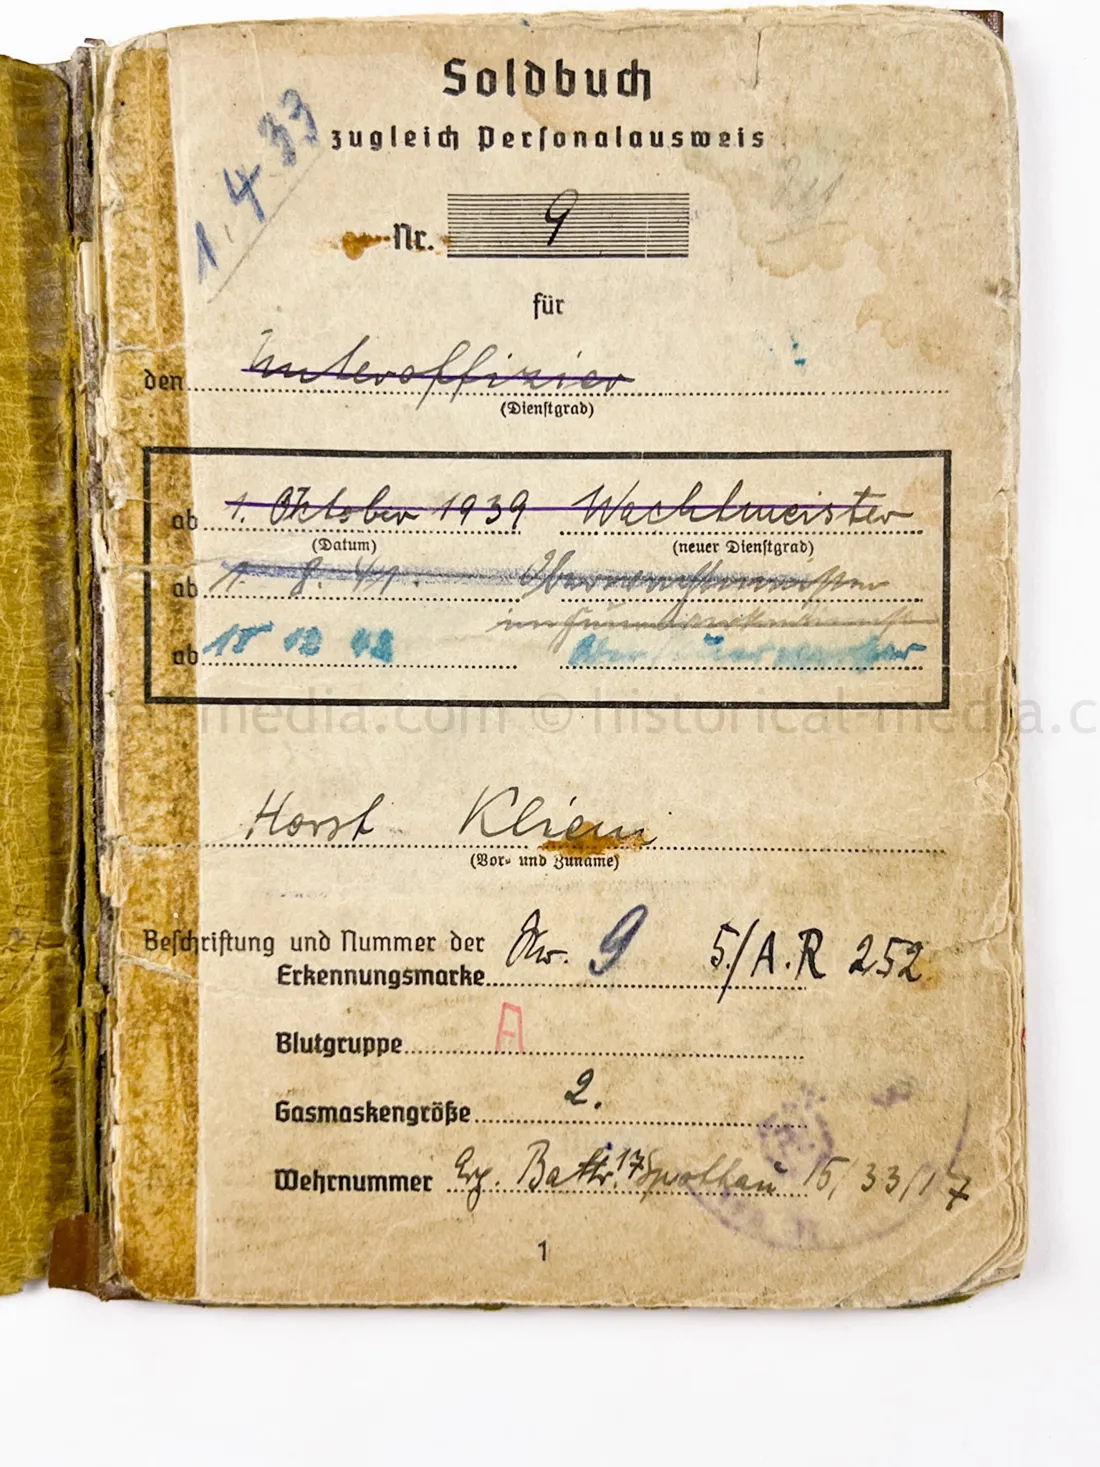 Soldbuch
zugleich Personalausweis
1.4.33
Nr. 9
für
den Unteroffizier
(Dienstgrad)
ab 1. Oktober 1939 Wachtmeister
(Datum) (neuer Dienstgrad)
ab 1. 8. 41. Oberwachtmeister
ab 12 42
historical-media.com © historical-media.c
Horst Kliem
(Vor- und Zuname)
Beschriftung und Nummer der
Erkennungsmarke Nr. 9 5./A.R 252
Blutgruppe A
Gasmaskengröße 2.
Wehrnummer 15/33/17
1